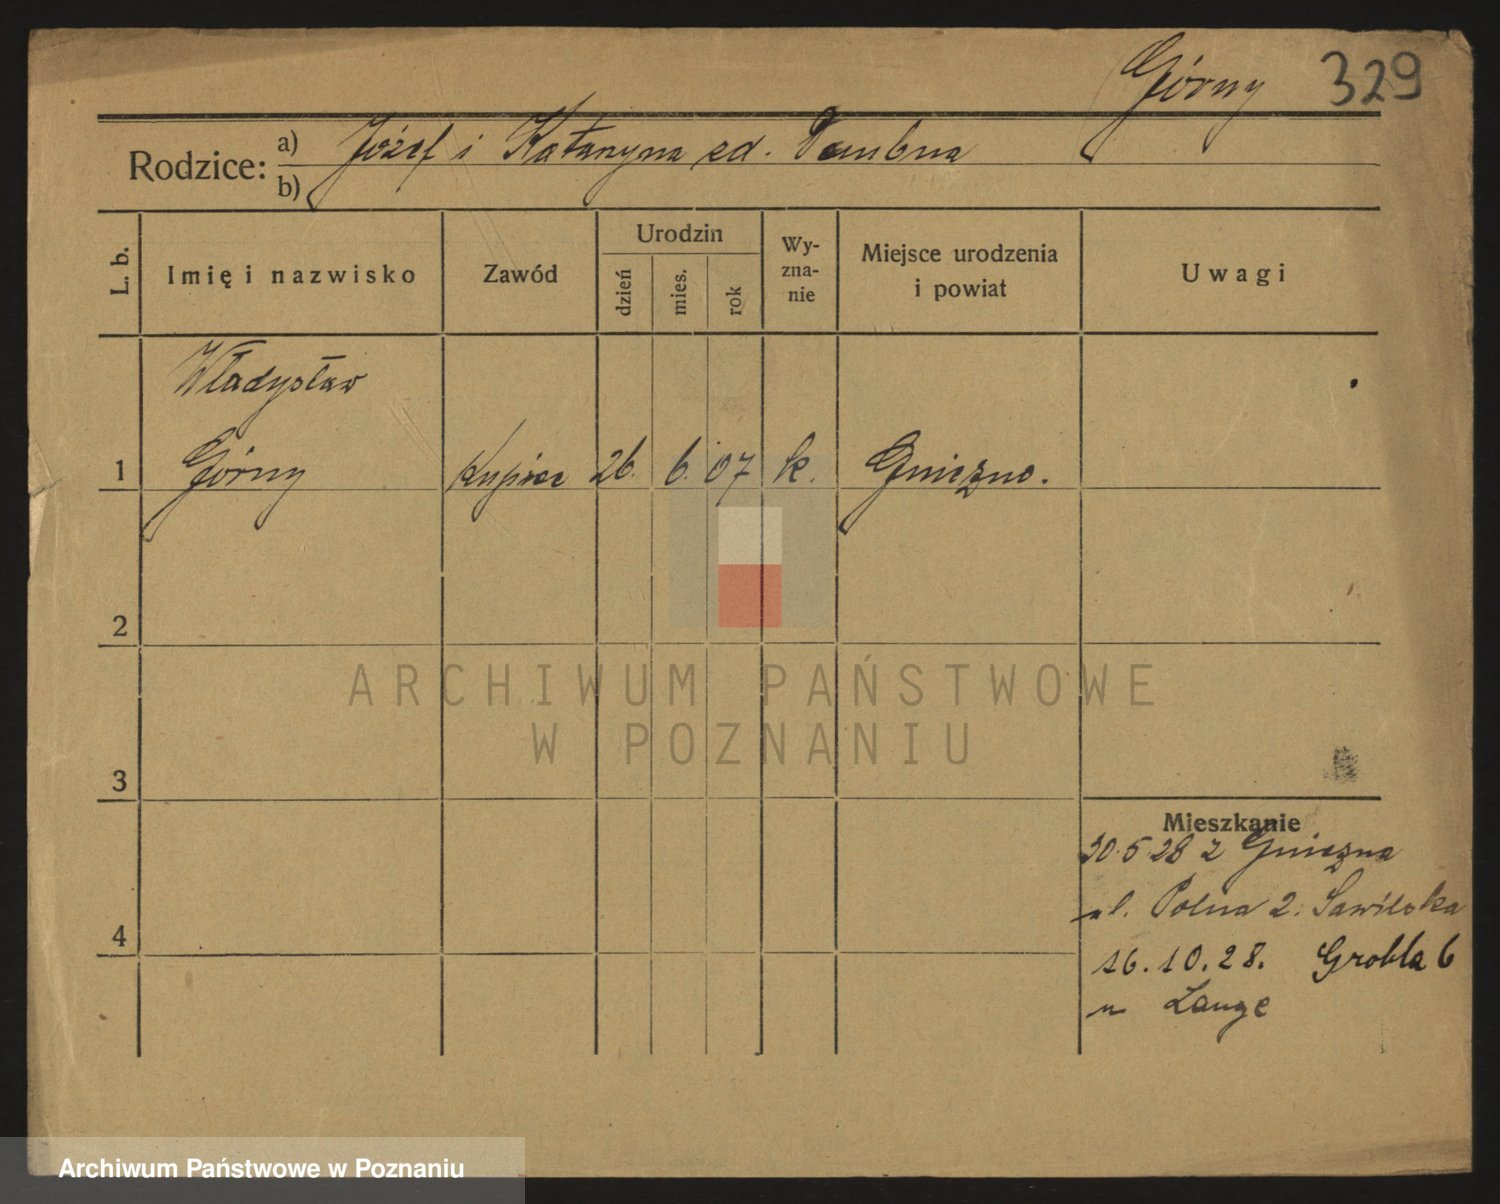 Górny 329
Rodzice: a) Józef i Katarzyna zd.
b)
L. b. Imię i nazwisko Zawód Urodzin dzień mies. rok Wy-zna-nie Miejsce urodzenia i powiat Uwagi
Władysław
1 Górny Kupiec 26. 6. 07 k. Gniezno.
2
ARCHIWUM PAŃSTWOWE
W POZNANIU
3
Mieszkanie
30.5.28 z Gniezna
4 ul. Polna 2.
16.10.28. Grobla 6
u Lange
Archiwum Państwowe w Poznaniu